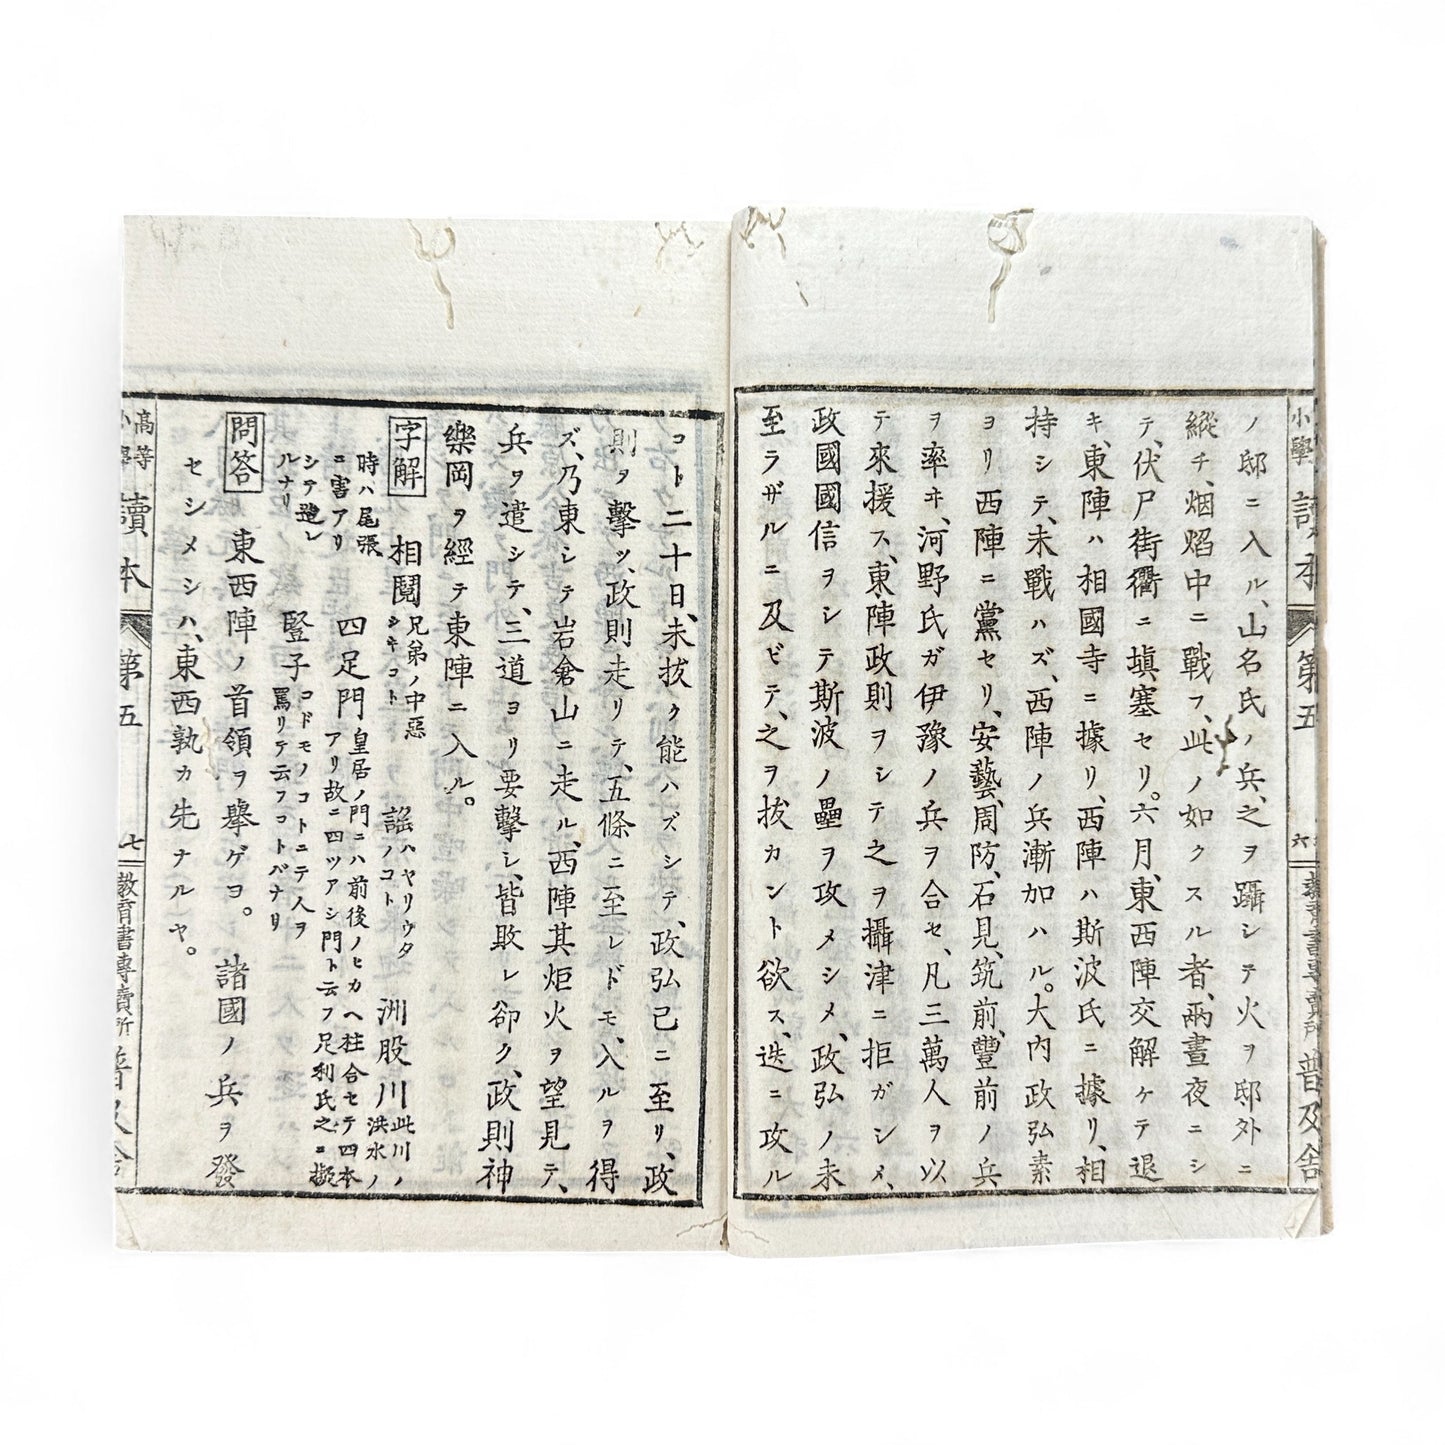 ノ邸ニ入ル、山名氏ノ兵、之ヲ躡シテ火ヲ邸外ニ
縱チ、烟焰中ニ戰フ、此ノ如クスル者、兩晝夜ニシ
テ、伏尸街衢ニ塡塞セリ。六月、東西陣交解ケテ退
キ、東陣ハ相國寺ニ據リ、西陣ハ斯波氏ニ據リ、相
持シテ、未戰ハズ、西陣ノ兵漸加ハル。大內政弘素
ヨリ西陣ニ黨セリ、安藝、周防、石見、筑前、豐前ノ兵
ヲ率ヰ、河野氏ガ伊豫ノ兵ヲ合セ、凡三萬人ヲ以
テ來援ス、東陣政則ヲシテ之ヲ攝津ニ拒ガシメ、
政國國信ヲシテ斯波ノ壘ヲ攻メシメ、政弘ノ未
至ラザルニ及ビテ、之ヲ拔カント欲ス、迭ニ攻ル
小學
讀本
第五
六
教育書專賣所
普及舍
コト二十日、未拔ク能ハズシテ、政弘已ニ至リ、政
則ヲ擊ツ、政則走リテ、五條ニ至レドモ、入ルヲ得
ズ、乃東シテ岩倉山ニ走ル、西陣其炬火ヲ望見テ、
兵ヲ遣シテ、三道ヨリ要擊シ、皆敗レ卻ク、政則神
樂岡ヲ經テ東陣ニ入ル。
字解
相鬩
兄弟ノ中惡
シキコト
謡
ハヤリウタ
ノコト
洲股川
此川ノ
洪水ノ
時ハ尾張
ニ害アリ
シテ
ルナリ
四足門
皇居ノ門ニハ前後ノヒカヘ柱合セテ四本
アリ故ニ四ツアシ門ト云フ足利氏之ニ擬
豎子
コドモノコトニテ人ヲ
罵リテ云フコトバナリ
問答
東西陣ノ首領ヲ擧ゲヨ。
諸國ノ兵ヲ發
セシメシハ、東西孰カ先ナルヤ。
高等
小學
讀本
第五
七
教育書專賣所
普及舍